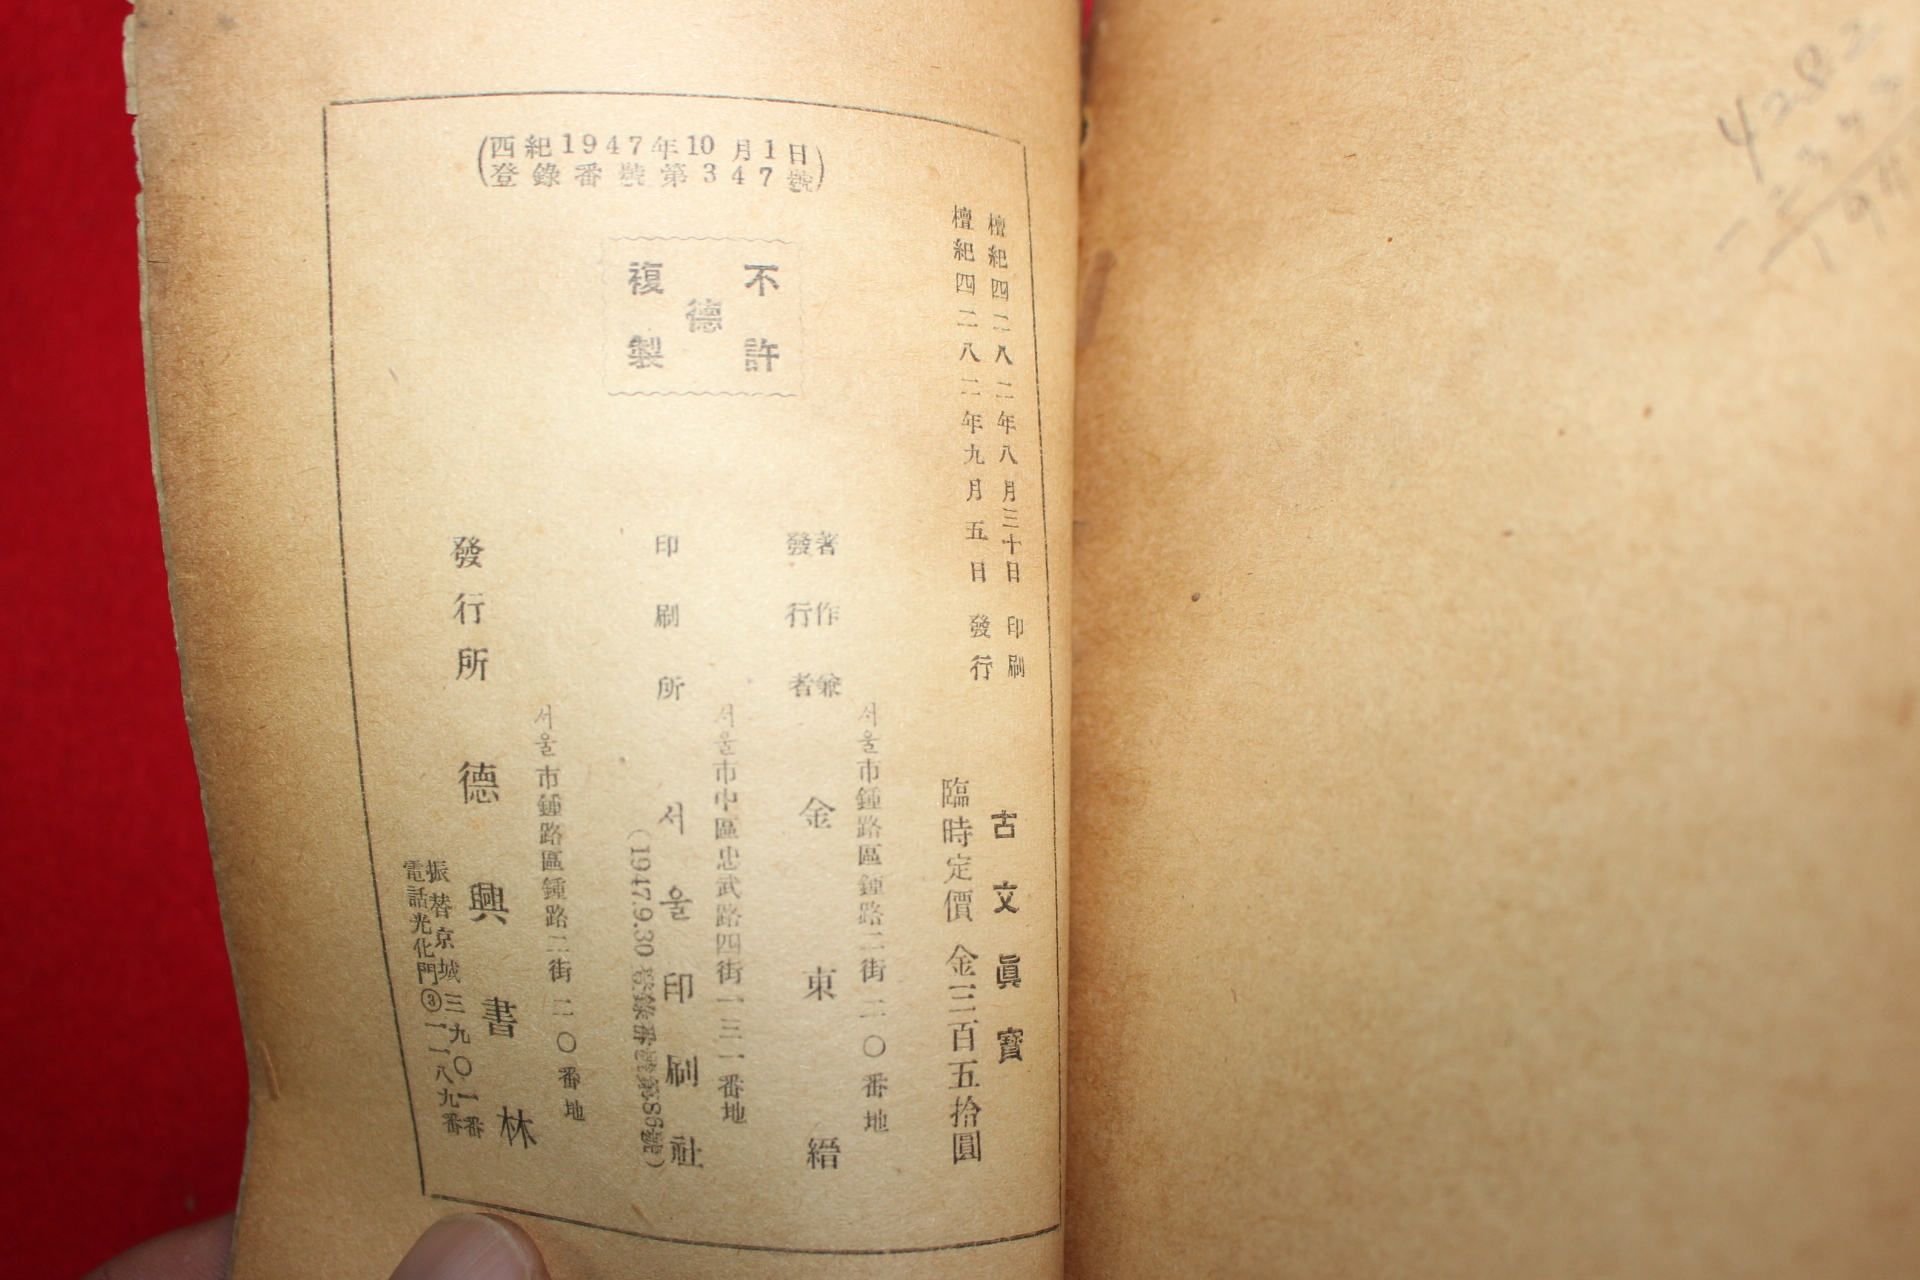 (西紀1947年10月1日
登錄番號第347號)
檀紀四二八二年八月三十日 印刷
檀紀四二八二年九月五日 發行
古文眞寶
臨時定價 金三百五拾圓
不許
德
複製
서울市鍾路區鍾路二街二〇番地
著作兼
發行者
金東縉
서울市中區忠武路四街一三一番地
印刷所
서울印刷社
(1947.9.30 登錄番號第86號)
서울市鍾路區鍾路二街二〇番地
發行所
德興書林
振替京城三九〇一番
電話光化門③一一八九番
4282